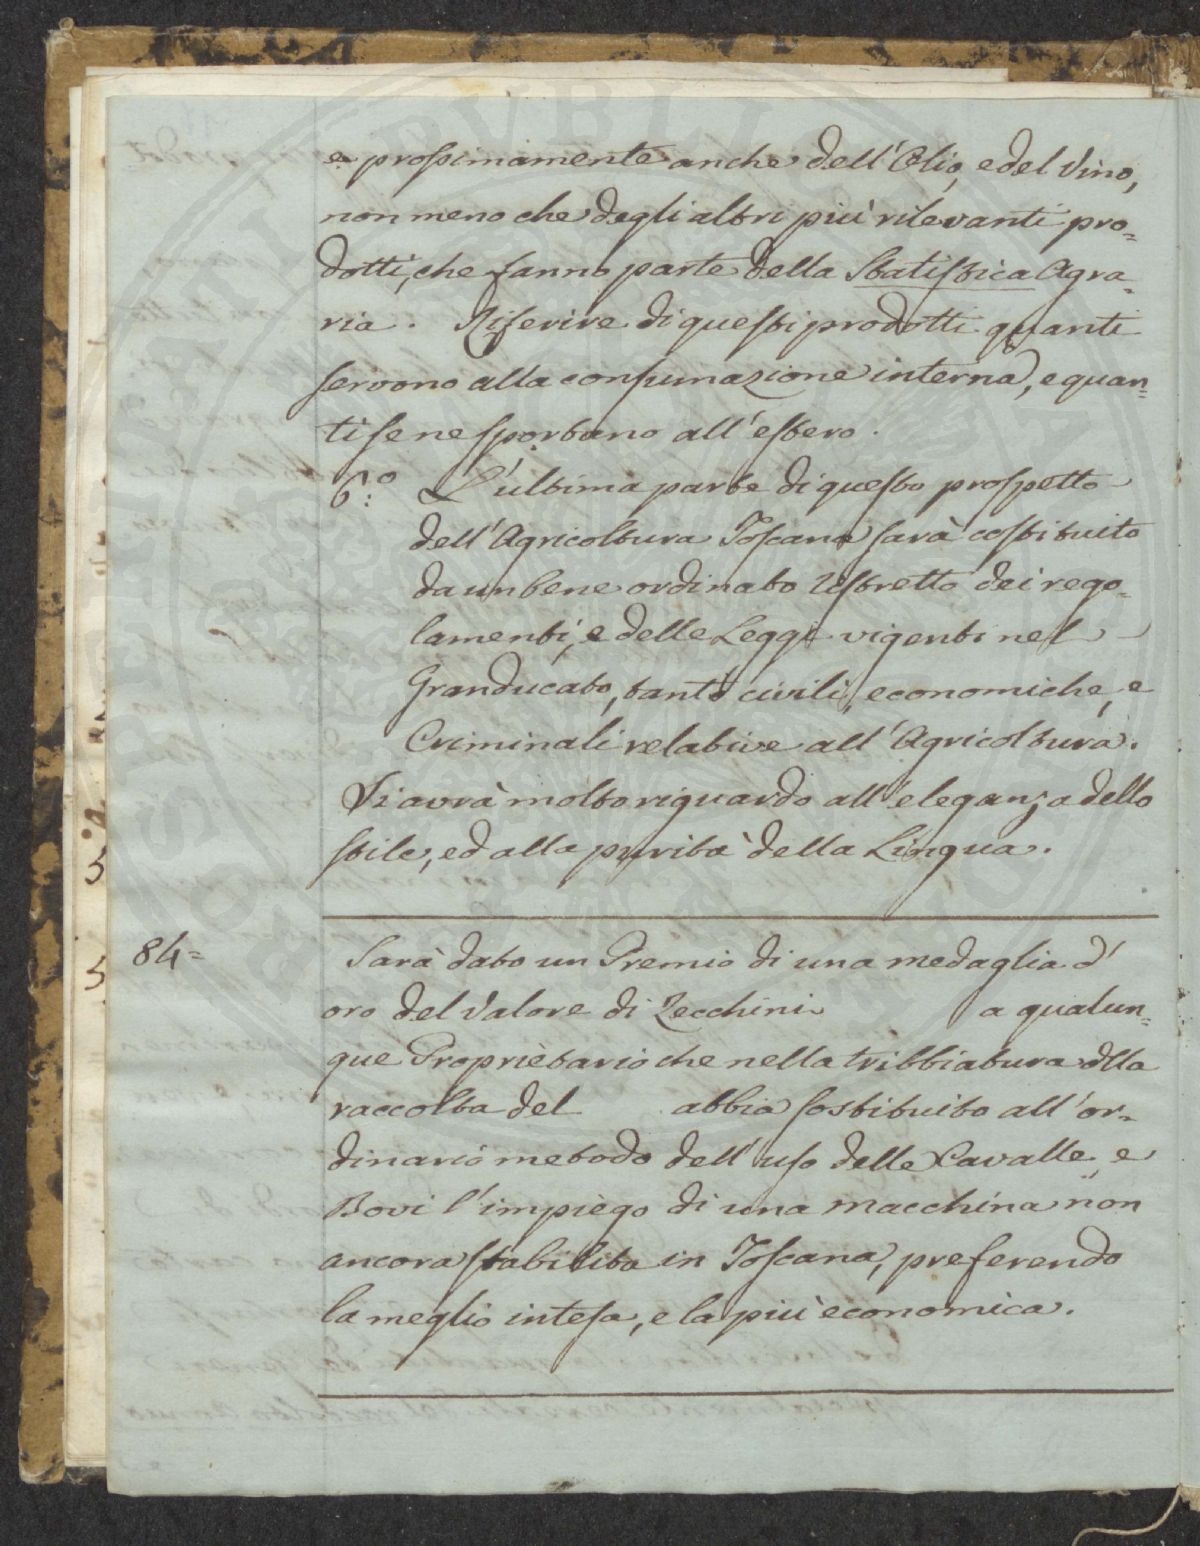 e prossimamente anche dell'Olio, e del Vino,
non meno che degli altri più rilevanti pro=
dotti, che fanno parte della Statistica Agra=
ria. Riferire di questi prodotti quanti
servono alla consumazione interna, e quan=
ti se ne sportano all'estero.
6.° L'ultima parte di questo prospetto
dell'Agricoltura Toscana sarà costituito
da un bene ordinato ristretto dei rego=
lamenti, e delle Leggi vigenti nel
Granducato, tanto civili, economiche, e
Criminali relative all'Agricoltura.
Si avrà molto riguardo all'eleganza dello
stile, ed alla purità della Lingua.
84= Sarà dato un Premio di una medaglia d'
oro del Valore di Zecchini a qualun=
que Proprietario che nella tribbiatura della
raccolta del abbia sostituito all'or=
dinario metodo dell'uso delle Cavalle, e
Bovi l'impiego di una macchina non
ancora stabilita in Toscana, preferendo
la meglio intesa, e la più economica.